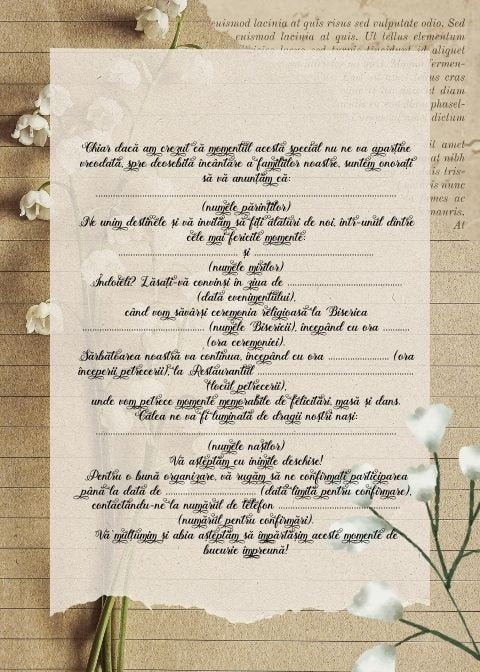 euismod lacinia at quis risus sed vulputate odio. Sed
euismod lacinia at quis. Ut tellus elementum
aliquet
fermen-
cras
diam
phasel-
dictum
amet
nibh
tris-
nunc
mes ac
mauris.
At
Chiar dacă am crezut că momentul acesta special nu ne va aparține
vreodată, spre deosebită încântare a familiilor noastre, suntem onorați
să vă anunțăm că:
................................................................
(numele părinților)
Ne unim destinele și vă invităm să fiți alături de noi, într-unul dintre
cele mai fericite momente:
........................ și ........................
(numele mirilor)
Îndoieli? Lăsați-vă convinși în ziua de ........................
(data evenimentului),
când vom săvârși ceremonia religioasă la Biserica
........................ (numele Bisericii), începând cu ora ........
(ora ceremoniei).
Sărbătoarea noastră va continua, începând cu ora ................ (ora
începerii petrecerii), la Restaurantul ................................
(locul petrecerii),
unde vom petrece momente memorabile de felicitări, masă și dans.
Calea ne va fi luminată de dragii noștri nași:
................................................................
(numele nașilor)
Vă așteptăm cu inimile deschise!
Pentru o bună organizare, vă rugăm să ne confirmați participarea
până la data de ........................ (data limită pentru confirmare),
contactându-ne la numărul de telefon ........................
(numărul pentru confirmări).
Vă mulțumim și abia așteptăm să împărtășim aceste momente de
bucurie împreună!